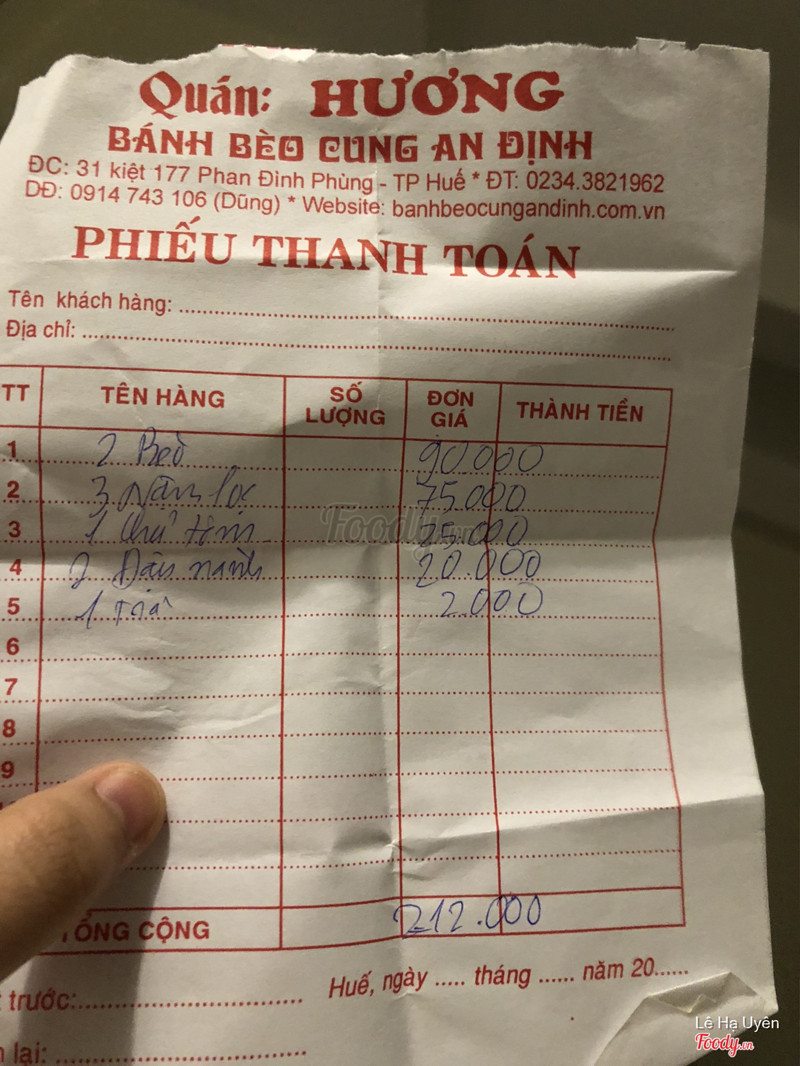 Quán: HƯƠNG
BÁNH BÈO CUNG AN ĐỊNH
ĐC: 31 kiệt 177 Phan Đình Phùng - TP Huế * ĐT: 0234.3821962
DĐ: 0914 743 106 (Dũng) * Website: banhbeocungandinh.com.vn
PHIẾU THANH TOÁN
Tên khách hàng:
Địa chỉ:
TT TÊN HÀNG SỐ LƯỢNG ĐƠN GIÁ THÀNH TIỀN
1 2 Bèo 90.000
2 3 Nậm lọc 75.000
3 1 Chả tôm 25.000
4 2 Đậu nành 20.000
5 1 Trà 2000
6
7
8
9
TỔNG CỘNG 212.000
Huế, ngày ..... tháng ...... năm 20......
trước:
lại:
Foody.vn
Lê Hạ Uyên
Foody.vn